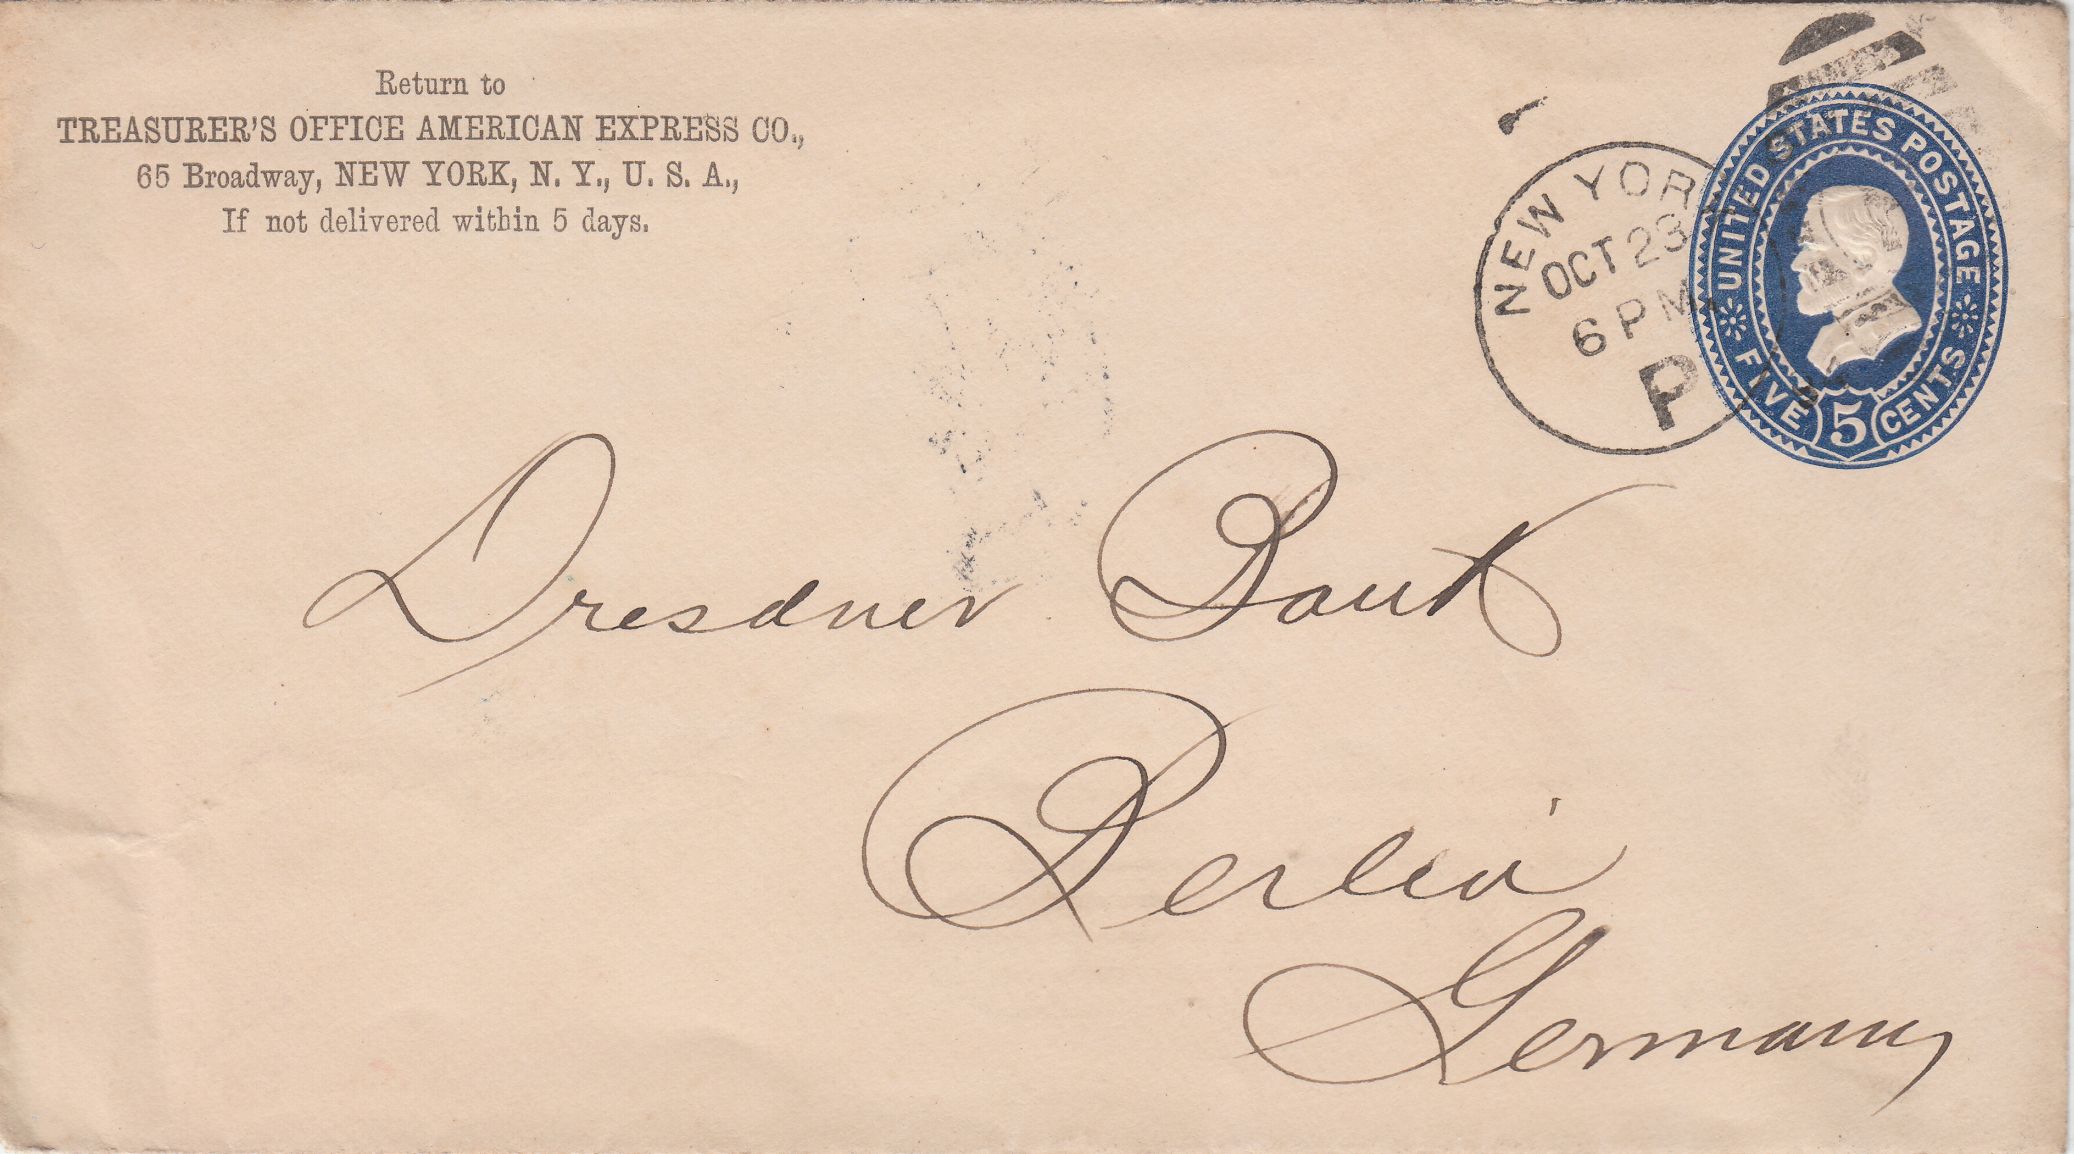 Return to
TREASURER'S OFFICE AMERICAN EXPRESS CO.,
65 Broadway, NEW YORK, N. Y., U. S. A.,
If not delivered within 5 days.
NEW YORK
OCT 23
6 PM
P
UNITED STATES POSTAGE
FIVE 5 CENTS
Dresdner Bank
Berlin
Germany